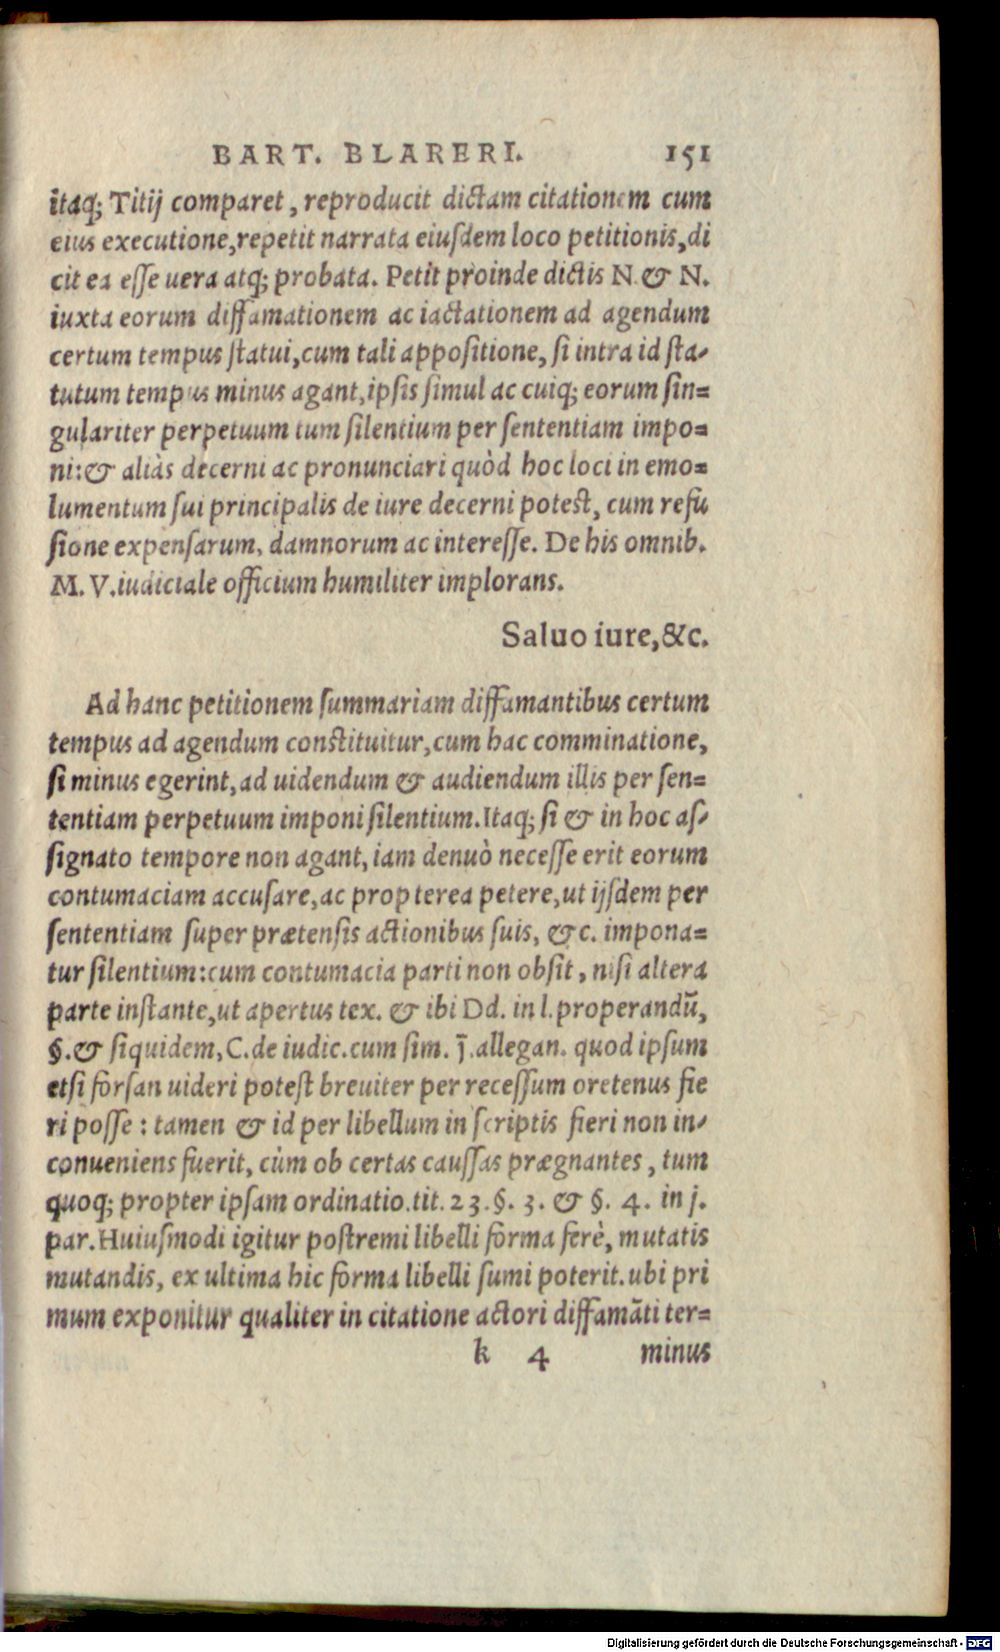 BART. BLARERI. 151
itaq; Titij comparet, reproducit dictam citationem cum
eius executione, repetit narrata eiusdem loco petitionis, di
cit ea esse uera atq; probata. Petit proinde dictis N. & N.
iuxta eorum diffamationem ac iactationem ad agendum
certum tempus statui, cum tali appositione, si intra id sta-
tutum tempus minus agant, ipsis simul ac cuiq; eorum sin=
gulariter perpetuum tum silentium per sententiam impo=
ni: & aliàs decerni ac pronunciari quòd hoc loci in emo=
lumentum sui principalis de iure decerni potest, cum refu
sione expensarum, damnorum ac interesse. De his omnib.
M. V. iudiciale officium humiliter implorans.
Saluo iure, &c.
Ad hanc petitionem summariam diffamantibus certum
tempus ad agendum constituitur, cum hac comminatione,
si minus egerint, ad uidendum & audiendum illis per sen=
tentiam perpetuum imponi silentium. Itaq; si & in hoc as-
signato tempore non agant, iam denuò necesse erit eorum
contumaciam accusare, ac propterea petere, ut ijsdem per
sententiam super prætensis actionibus suis, &c. impona=
tur silentium: cum contumacia parti non obsit, nisi altera
parte instante, ut apertus tex. & ibi Dd. in l. properandū,
§. & siquidem, C. de iudic. cum sim. j̄. allegan. quod ipsum
etsi forsan uideri potest breuiter per recessum oretenus fie
ri posse: tamen & id per libellum in scriptis fieri non in-
conueniens fuerit, cùm ob certas caussas prægnantes, tum
quoq; propter ipsam ordinatio. tit. 23. §. 3. & §. 4. in j.
par. Huiusmodi igitur postremi libelli forma ferè, mutatis
mutandis, ex ultima hic forma libelli sumi poterit. ubi pri
mum exponitur qualiter in citatione actori diffamāti ter=
k 4 minus
Digitalisierung gefördert durch die Deutsche Forschungsgemeinschaft - DFG